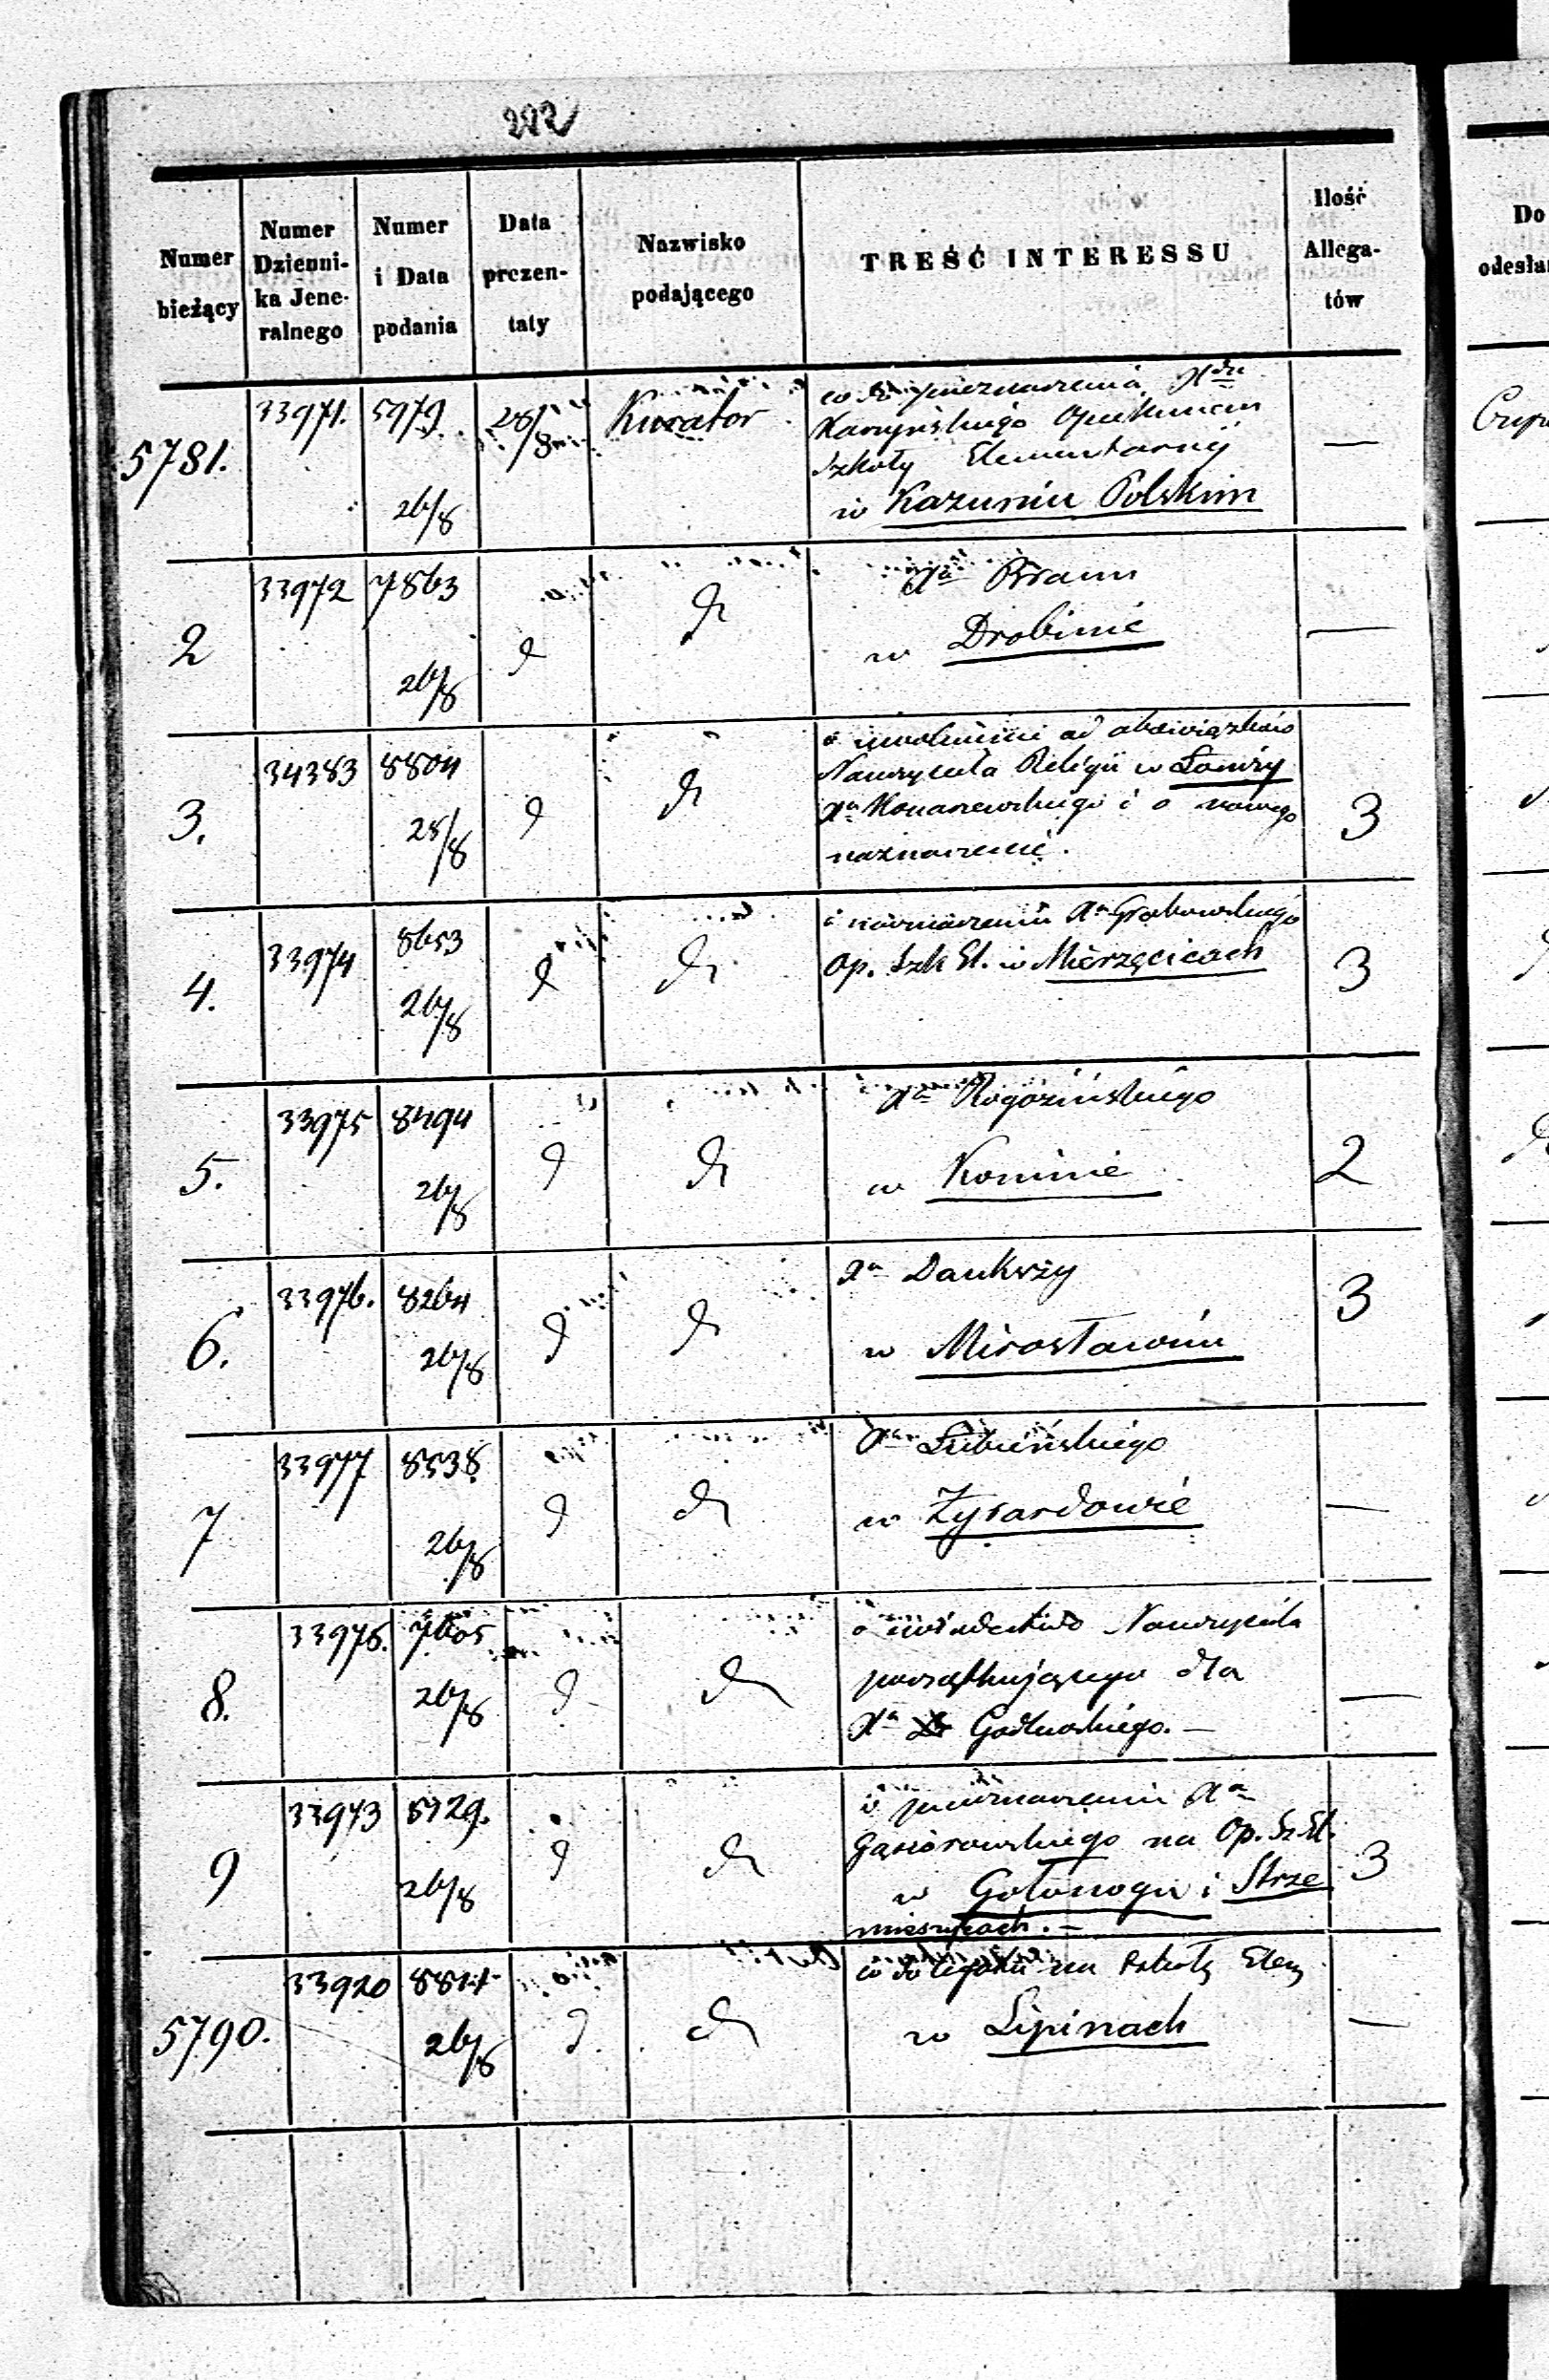 222
Numer bieżący
Numer Dzienni-ka Jene-ralnego
Numer i Data podania
Data prezen-taty
Nazwisko podającego
TREŚĆ INTERESSU
Ilość Allega-tów
Do odesła
5781. 33971. 5979. 26/8 28/8 Kurator
Karzyńskiego Opiekunem
Szkoły Elementarnéj
w Kazuniu Polskim —
2 33972 7863 26/8 d d
Xa Braun
w Drobinie —
3. 34383 8804 25/8 d d
o uwolnienie od obowiązków
Nauczyciela Religii w Łomży
Xa Konarzewskiego i o nowego
naznaczenie. 3
4. 33974 8653 26/8 d d
o naznaczeniu Xa Grabowskiego
Op. Szk El. w Mierzęcicach 3
5. 33975 8494 26/8 d d
Xa Rogozińskiego
w Koninie 2
6. 33976. 8264 26/8 d d
Xa Daukszy
w Mirosławiu 3
7 33977 8538 26/8 d d
Xa Lubińskiego
w Żyrardowie —
8. 33978. 7605 26/8 d d
o świadectwo Nauczyciela
początkującego dla
Xa Godlewskiego. —
9 33973 8729. 26/8 d d
o przeznaczeniu Xa
Gąsiorowskiego na Op. Sz El.
w Gołonogu i Strze
mieszycach. — 3
5790. 33920 8824 26/8 d d
na szkołę Elem
w Lipinach —